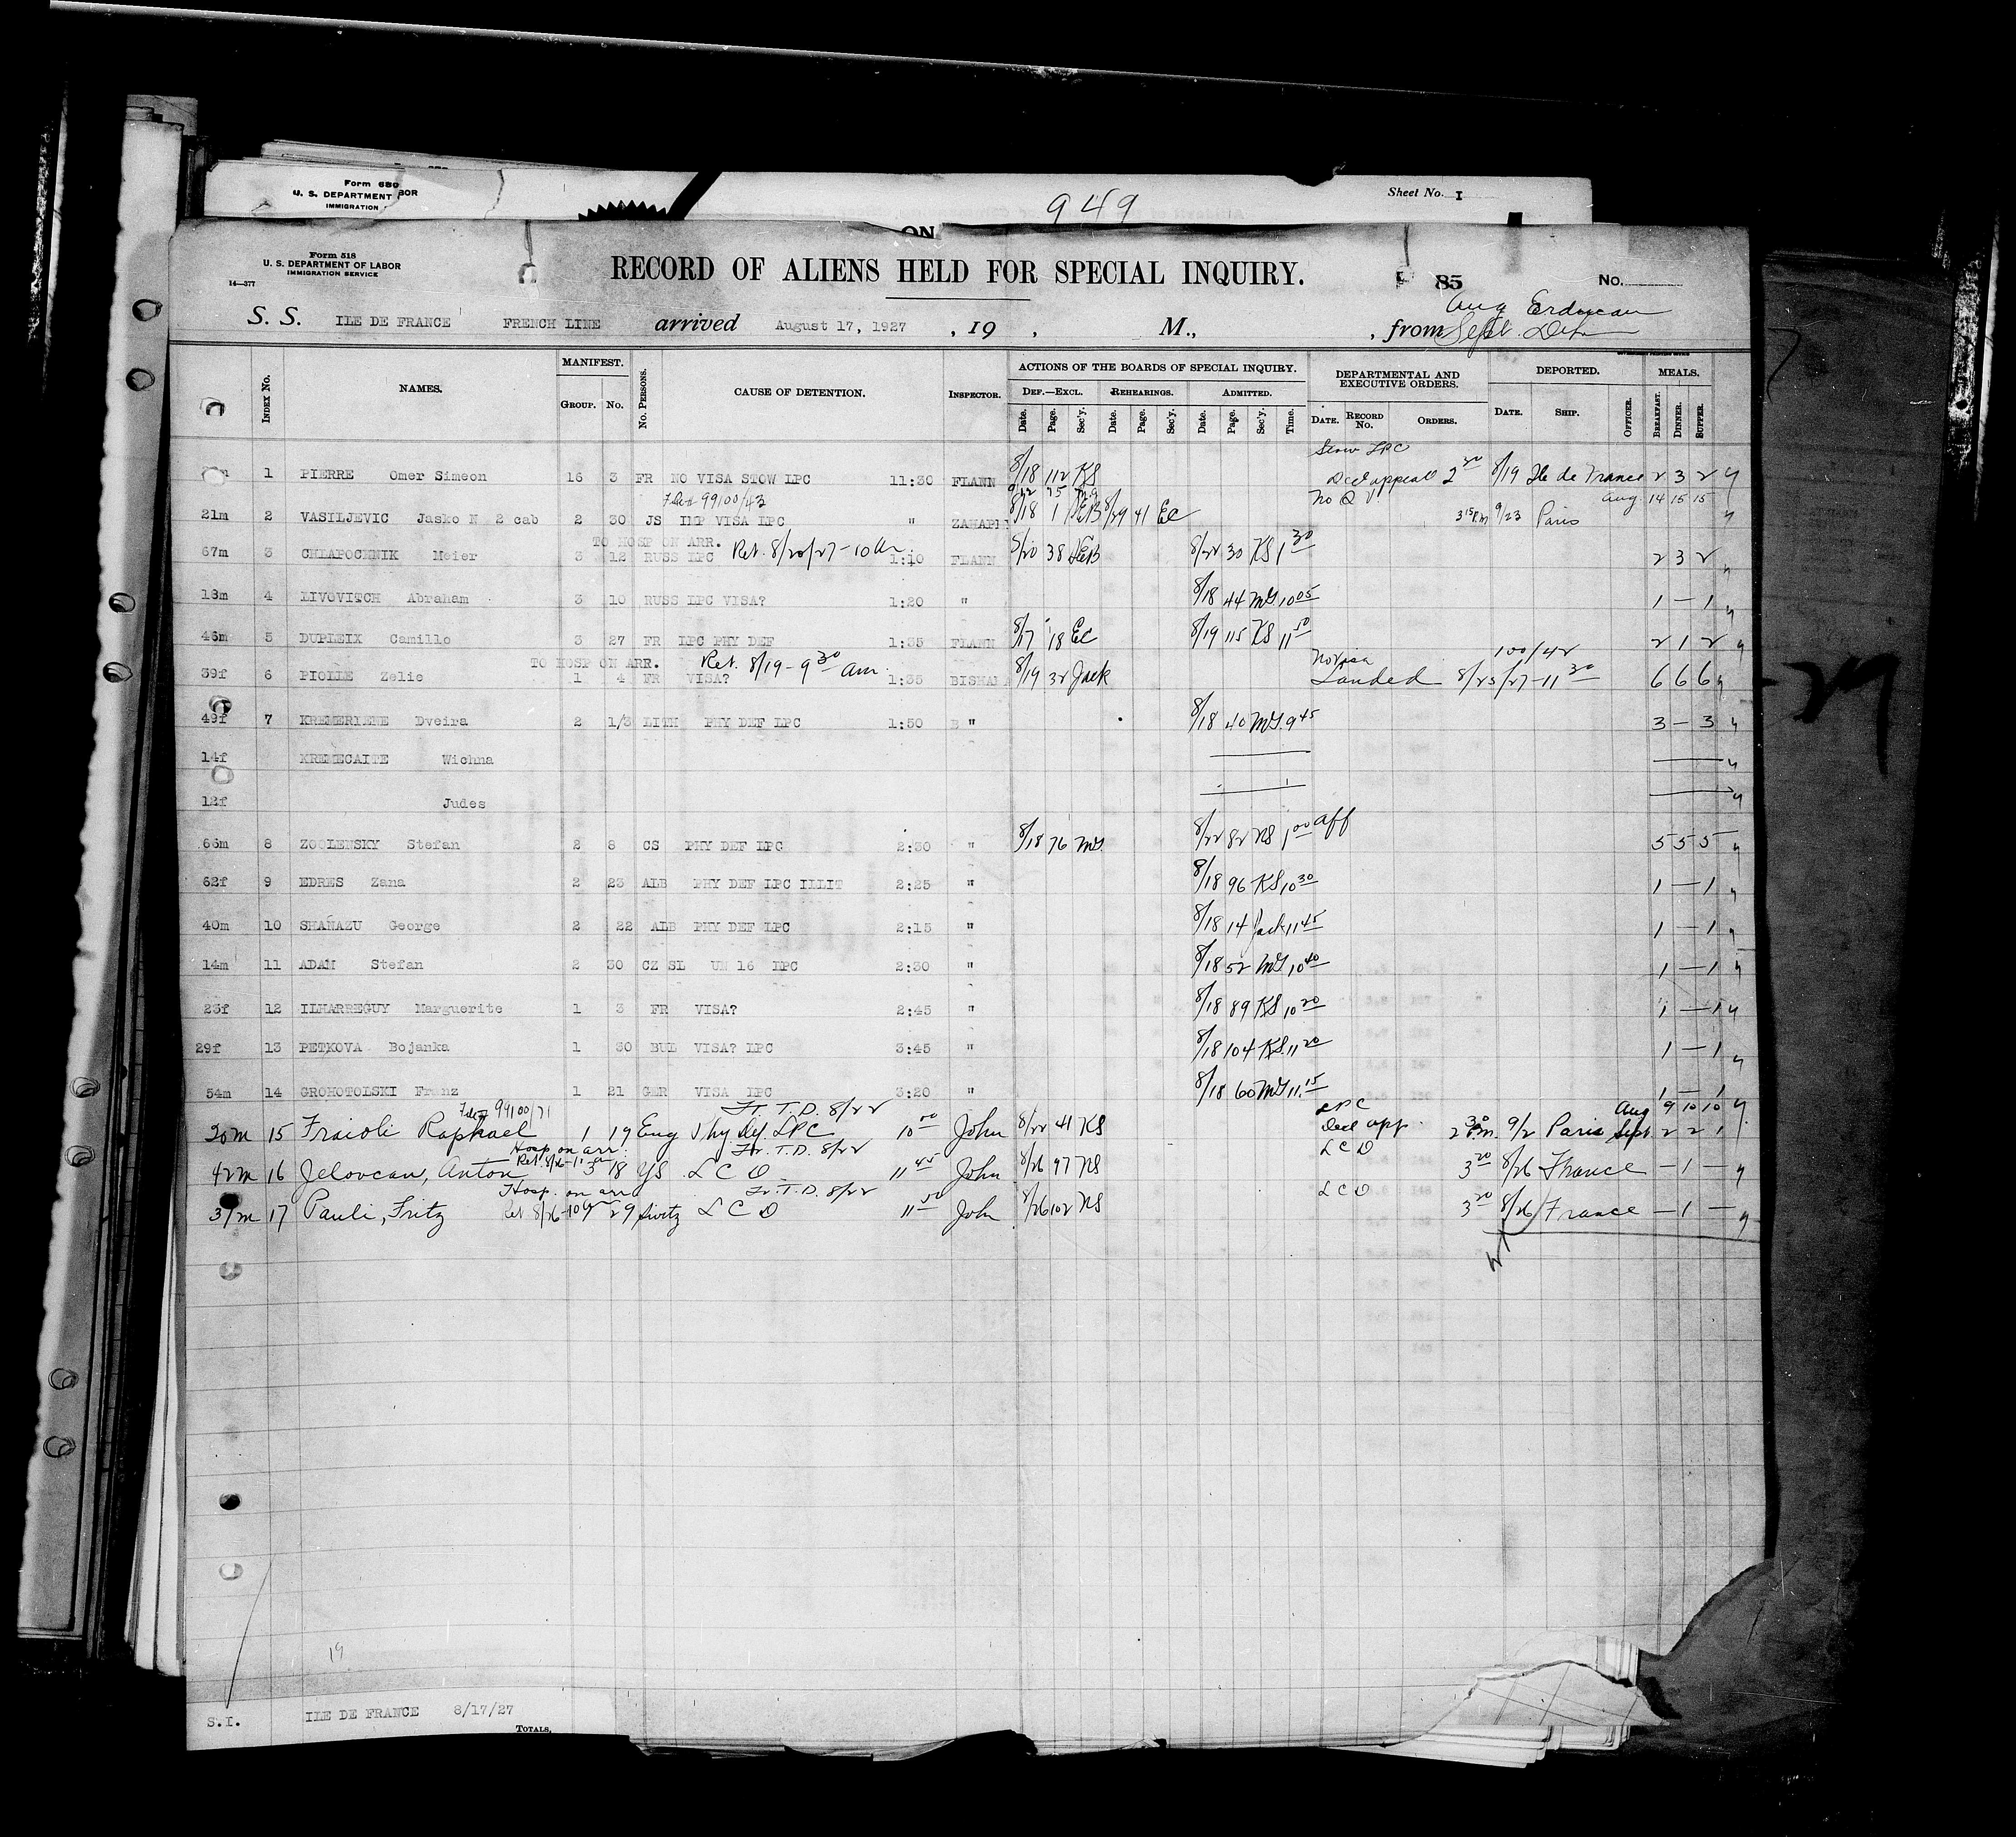 Form 680
U. S. DEPARTMENT BOR
IMMIGRATION
949
Sheet No. I
ON
Form 518
U. S. DEPARTMENT OF LABOR
IMMIGRATION SERVICE
14—377
RECORD OF ALIENS HELD FOR SPECIAL INQUIRY.
85
No.
S. S. ILE DE FRANCE FRENCH LINE arrived August 17, 1927 , 19 , M., , from
Index No. NAMES. MANIFEST. Group. No. No. Persons. CAUSE OF DETENTION. Inspector. ACTIONS OF THE BOARDS OF SPECIAL INQUIRY. DEPARTMENTAL AND EXECUTIVE ORDERS. DEPORTED. MEALS.
Def.—Excl. Rehearings. Admitted.
Date. Page. Sec'y. Date. Page. Sec'y. Date. Page. Sec'y. Time. Date. Record No. Orders. Date. Ship. Officer. Breakfast. Dinner. Supper.
Stow LPC
1 PIERRE Omer Simeon 16 3 FR NO VISA STOW LPC 11:30 FLANN 8/18 112 KS appeal 2 30 8/19 Ile de France 2 3 2
99100/43 No Q V Aug 14 15 15
21m 2 VASILJEVIC Jasko N 2 cab 2 30 JS IMP VISA LPC " 8/18 1 8/29 41 EC 3 15 PM 9/23 Paris
TO HOSP ON ARR. Ret. 8/20/27-10 am
67m 3 CHLAPOCHNIK Meier 3 12 RUSS LPC 1:10 FLANN 8/20 38 8/22 30 KS 1 30 2 3 2
18m 4 LIVOVITCH Abraham 3 10 RUSS LPC VISA? 1:20 " 8/18 44 MG 10 05 1 — 1
46m 5 DUPLEIX Camillo 3 27 FR LPC PHY DEF 1:35 FLANN 8/17 18 EC 8/19 115 KS 11 50 2 1 2
TO HOSP ON ARR. Ret. 8/19-9 30 am No Visa 100/42
39f 6 PIOLLE Zelie 1 4 FR VISA? 1:35 8/19 32 Jack Landed 8/25/27-11 30 6 6 6
49f 7 KREMERIENE Dveira 2 1/3 LITH PHY DEF LPC 1:50 " 8/18 40 MG 9 45 3 — 3
14f KREMECAITE Wichna
12f Judes
66m 8 ZOOLENSKY Stefan 2 8 CS PHY DEF LPC 2:30 " 8/18 76 MG 8/22 82 1 00 aff 5 5 5
62f 9 EDRES Zana 2 23 ALB PHY DEF LPC ILLIT 2:25 " 8/18 96 KS 10 30 1 — 1
40m 10 SHANAZU George 2 22 ALB PHY DEF LPC 2:15 " 8/18 14 Jack 11 45 1 — 1
14m 11 ADAM Stefan 2 30 CZ SL UN 16 LPC 2:30 " 8/18 52 MG 10 40 1 — 1
23f 12 ILHARREGUY Marguerite 1 3 FR VISA? 2:45 " 8/18 89 KS 10 20 1 — 1
29f 13 PETKOVA Bojanka 1 30 BUL VISA? LPC 3:45 " 8/18 104 KS 11 20 1 — 1
54m 14 GROHOTOLSKI Franz 1 21 GER VISA LPC 3:20 " 8/18 60 MG 11 15 1 — 1
99100/71 Fr. T. D. 8/22 LPC Aug 9 10 10
20m 15 Fraioli Raphael 1 19 Eng Phy Def. LPC 10 50 John 8/22 41 KS app. 2 30 P.m. 9/2 Paris Sept 2 2 1
Hosp on arr. Ret. 8/26-11 am Fr. T. D. 8/22 LCD
42m 16 Jelovcan, Anton 3 18 YS LCD 11 45 John 8/26 97 3 20 8/26 France — 1 —
Hosp. on arr. Ret 8/26-10 Fr. T. D. 8/22 LCD
31m 17 Pauli, Fritz 29 LCD 11 50 John 8/26 102 3 20 8/26 France — 1 —
19
S.I. ILE DE FRANCE 8/17/27
Totals.